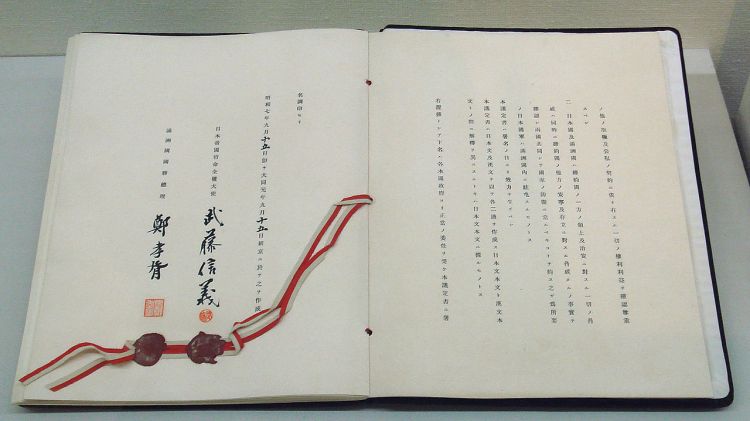 ノ他ノ取極及公私ノ契約ニ依リ有スル一切ノ權利利益ヲ確認尊重
スベシ
二、日本國及滿洲國ハ締約國ノ一方ノ領土及治安ニ對スル一切ノ脅
威ハ同時ニ締約國ノ他方ノ安寧及存立ニ對スル脅威タルノ事實ヲ
確認シ兩國共同シテ國家ノ防衞ニ當ルベキコトヲ約ス之ガ爲所要
ノ日本國軍ハ滿洲國內ニ駐屯スルモノトス
本議定書ハ署名ノ日ヨリ效力ヲ生ズベシ
本議定書ハ日本文及漢文ヲ以テ各二通ヲ作成ス日本文本文ト漢文本
文トノ間ニ解釋ヲ異ニスルトキハ日本文本文ニ據ルモノトス
右證據トシテ下名ハ各本國政府ヨリ正當ノ委任ヲ受ケ本議定書ニ署
名調印セリ
昭和七年九月十五日卽チ大同元年九月十五日新京ニ於テ之ヲ作成
日本帝國特命全權大使
武藤信義
滿洲國國務總理
鄭孝胥